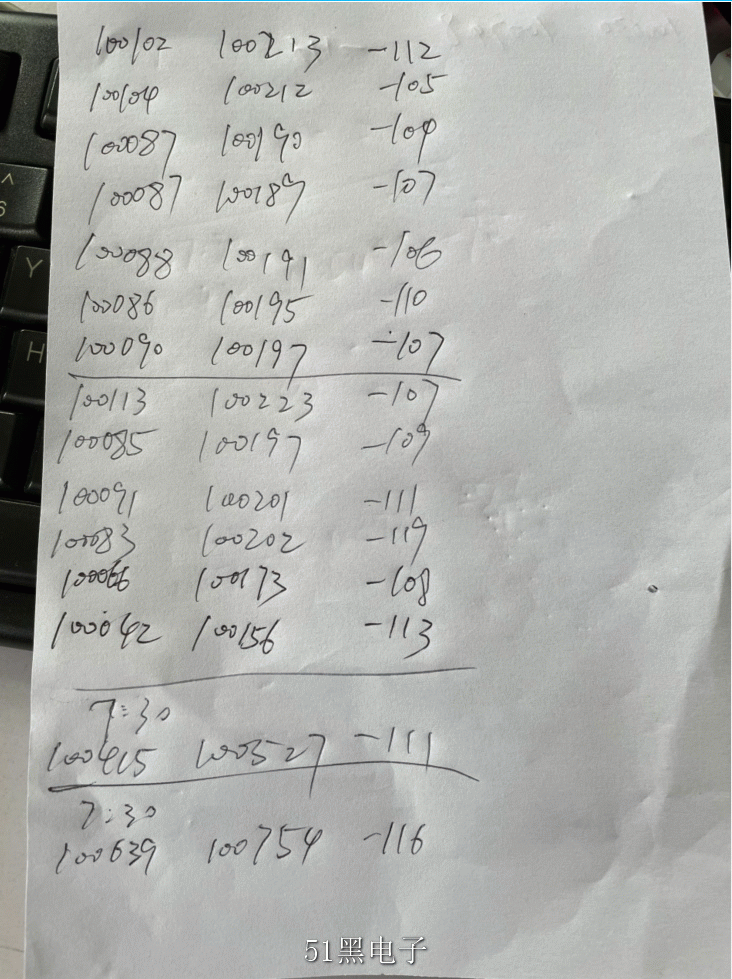 100102 100213 -112
100104 100212 -105
100087 100190 -104
100087 100189 -107
100088 100191 -106
100086 100195 -110
100090 100197 -107
100113 100223 -107
100085 100197 -109
100091 100201 -111
100083 100202 -119
100066 100173 -108
100042 100156 -113
7:30
100415 100527 -111
7:30
100639 100754 -116
51黑电子